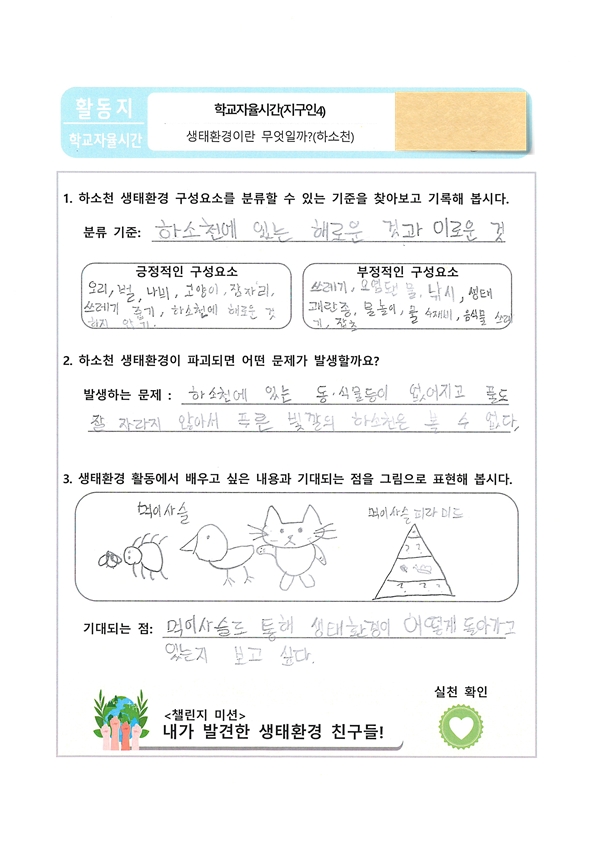 활동지
학교자율시간
학교자율시간(지구인4)
생태환경이란 무엇일까?(하소천)
1. 하소천 생태환경 구성요소를 분류할 수 있는 기준을 찾아보고 기록해 봅시다.
분류 기준: 하소천에 있는 해로운 것과 이로운 것
긍정적인 구성요소
오리, 벌, 나비, 고양이, 잠자리,
쓰레기 줍기, 하소천에 해로운 것
하지 않기.
부정적인 구성요소
쓰레기, 오염된 물, 낚시, 생태
교란종, 물놀이, 물 수제비, 음식물 쓰레
기, 잡초
2. 하소천 생태환경이 파괴되면 어떤 문제가 발생할까요?
발생하는 문제 : 하소천에 있는 동·식물등이 없어지고 풀도
잘 자라지 않아서 푸른 빛깔의 하소천은 볼 수 없다.
3. 생태환경 활동에서 배우고 싶은 내용과 기대되는 점을 그림으로 표현해 봅시다.
먹이사슬
먹이사슬 피라미드
? ?
? ? ?
기대되는 점: 먹이사슬도 통해 생태환경이 어떻게 돌아가고
있는지 보고 싶다.
실천 확인
<챌린지 미션>
내가 발견한 생태환경 친구들!